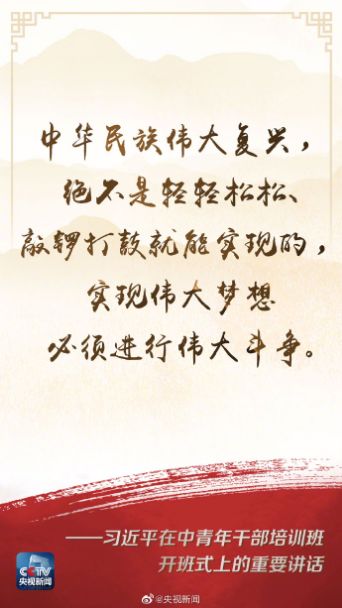 中华民族伟大复兴，
绝不是轻轻松松、
敲锣打鼓就能实现的，
实现伟大梦想
必须进行伟大斗争。
——习近平在中青年干部培训班
开班式上的重要讲话
CCTV
央视新闻
@央视新闻